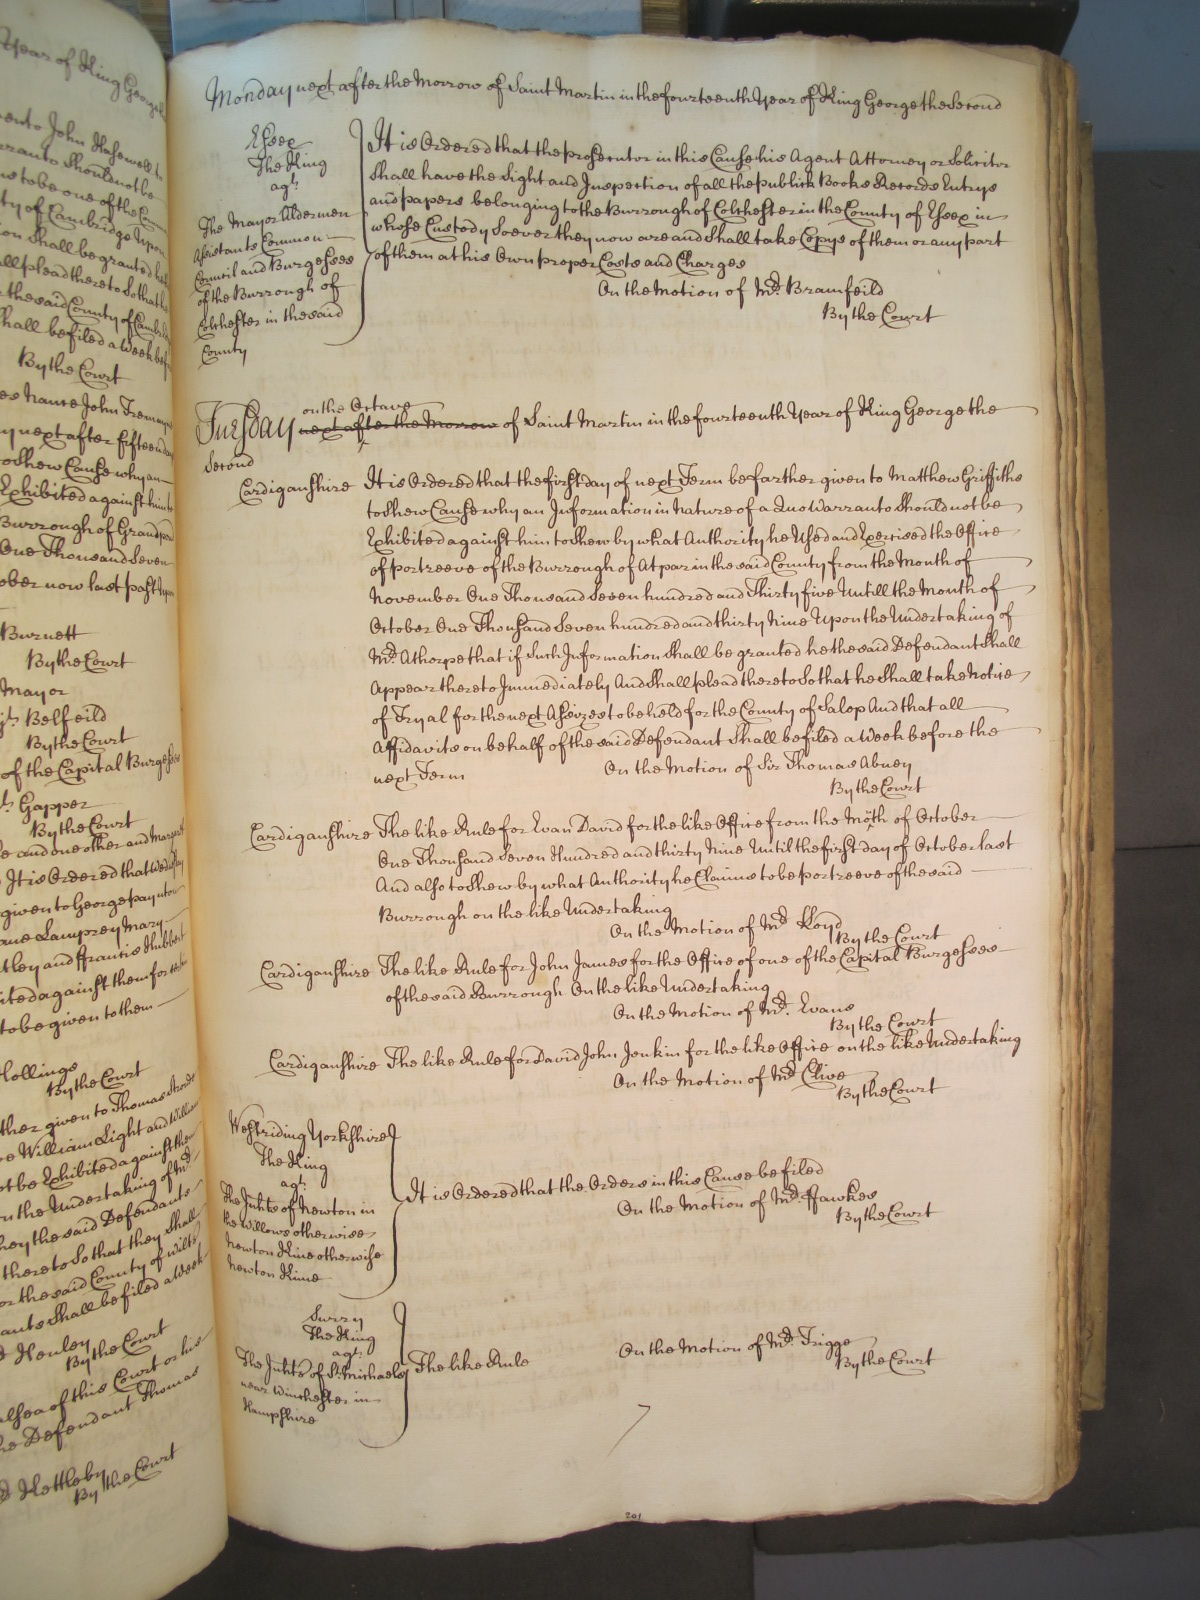 Year of King George
to John Haswell to
Warranto Should not be
to be one of the Common
ty of Cambridge Upon
on Shall be granted he
all plead thereto So that he
r the said County of Cambri
Shall be filed a Week bef
By the Court
es Nance John Tremayne
y next after fifteen days
to Shew Cause why an
Exhibited against him to
Burrough of Grandpo
One Thousand Seven
ober now last past Upon
Burnett
By the Court
Mayor
Belfeild
By the Court
of the Capital Burgesses
Gapper
By the Court
e and one other and Margaret
It is Ordered that Wednesday
given to George paynton
ane Lamprey Mary
tley and ffrancis Hubbert
ited against them for
to be given to them
Hollings
By the Court
ther given to Thomas Strode
e William Light and William
ot be Exhibited against them
n the Undertaking of Mr.
hey the said Defendants
thereto So that they Shall
or the said County of Wilts
ants Shall be filed a Week
Henley
By the Court
alsea of this Court or his
he Defendant Thomas
Kettleby
By the Court
Monday next after the Morrow of Saint Martin in the fourteenth Year of King George the Second
Essex
The King
agt.
The Mayor Aldermen
Assistants Common
Council and Burgesses
of the Burrough of
Colchester in the said
County
It is Ordered that the prosecutor in this Cause his Agent Attorney or Solicitor
Shall have the Sight and Inspection of all the publick Books Records Entrys
and papers belonging to the Burrough of Colchester in the County of Essex in
whose Custody Soever they now are and Shall take Copys of them or any part
of them at his Own proper Costs and Charges
On the Motion of Mr. Bramfeild
By the Court
on the Octave
Tuesday next after the Morrow of Saint Martin in the fourteenth Year of King George the
Second
Cardiganshire It is Ordered that the first day of next Term be farther given to Matthew Griffiths
to Shew Cause why an Information in Nature of a Quo Warranto Should not be
Exhibited against him to Shew by what Authority he Used and Exercised the Office
of portreeve of the Burrough of Atpar in the said County from the Month of
November One Thousand Seven hundred and Thirty five Untill the Month of
October One Thousand Seven hundred and thirty Nine Upon the Undertaking of
Mr. Athorpe that if Such Information Shall be granted he the said Defendant Shall
Appear thereto Immediately And Shall plead thereto So that he Shall take Notice
of Tryal for the next Assizes to be held for the County of Salop And that all
Affidavits on behalf of the said Defendant Shall be filed a Week before the
next Term On the Motion of Sir Thomas Abney
By the Court
Cardiganshire The like Rule for Evan David for the like Office from the Moth of October
One Thousand Seven Hundred and thirty Nine Until the first day of October last
And also to Shew by what Authority he Claims to be portreeve of the said
Burrough on the like Undertaking
On the Motion of Mr. Lloyd
By the Court
Cardiganshire The like Rule for John James for the Office of one of the Capital Burgesses
of the said Burrough On the like Undertaking
On the Motion of Mr. Evans
By the Court
Cardiganshire The like Rule for David John Jenkin for the like Office on the like Undertaking
On the Motion of Mr. Clive
By the Court
Westriding Yorkshire
The King
agt.
The Inhts of Newton in
the Willows otherwise
Newton Kine otherwise
Newton Kime
It is Ordered that the Orders in this Cause be filed
On the Motion of Mr. ffawkes
By the Court
Surry
The King
agt.
The Inhts of St. Michaels
near Winchester in
Hampshire
The like Rule
On the Motion of Mr. Trigge
By the Court
201